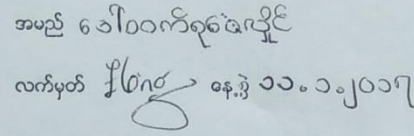 အမည် ဒေါ်ဝက်ရုဇေလှိုင်
လက်မှတ် နေ့စွဲ ၁၁.၁.၂၀၁၇